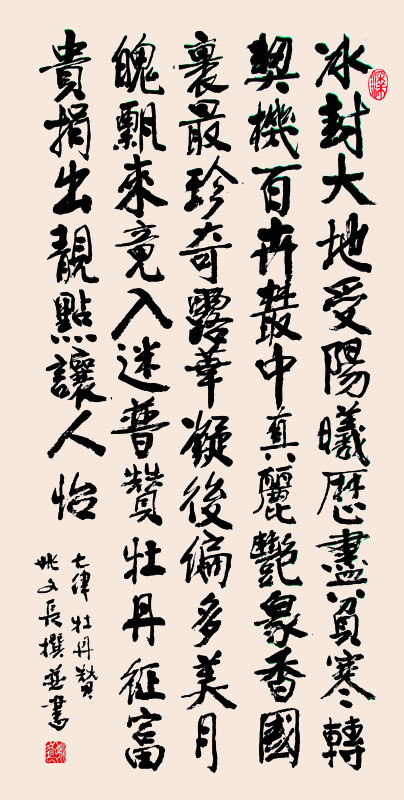 冰封大地受陽曦歷盡貧寒轉
契機百卉叢中真麗艷眾香國
裏最珍奇露華凝後偏多美月
魄飄來竟入迷普贊牡丹征富
貴捐出靚點讓人怡
七律牡丹贊
姚文長撰並書